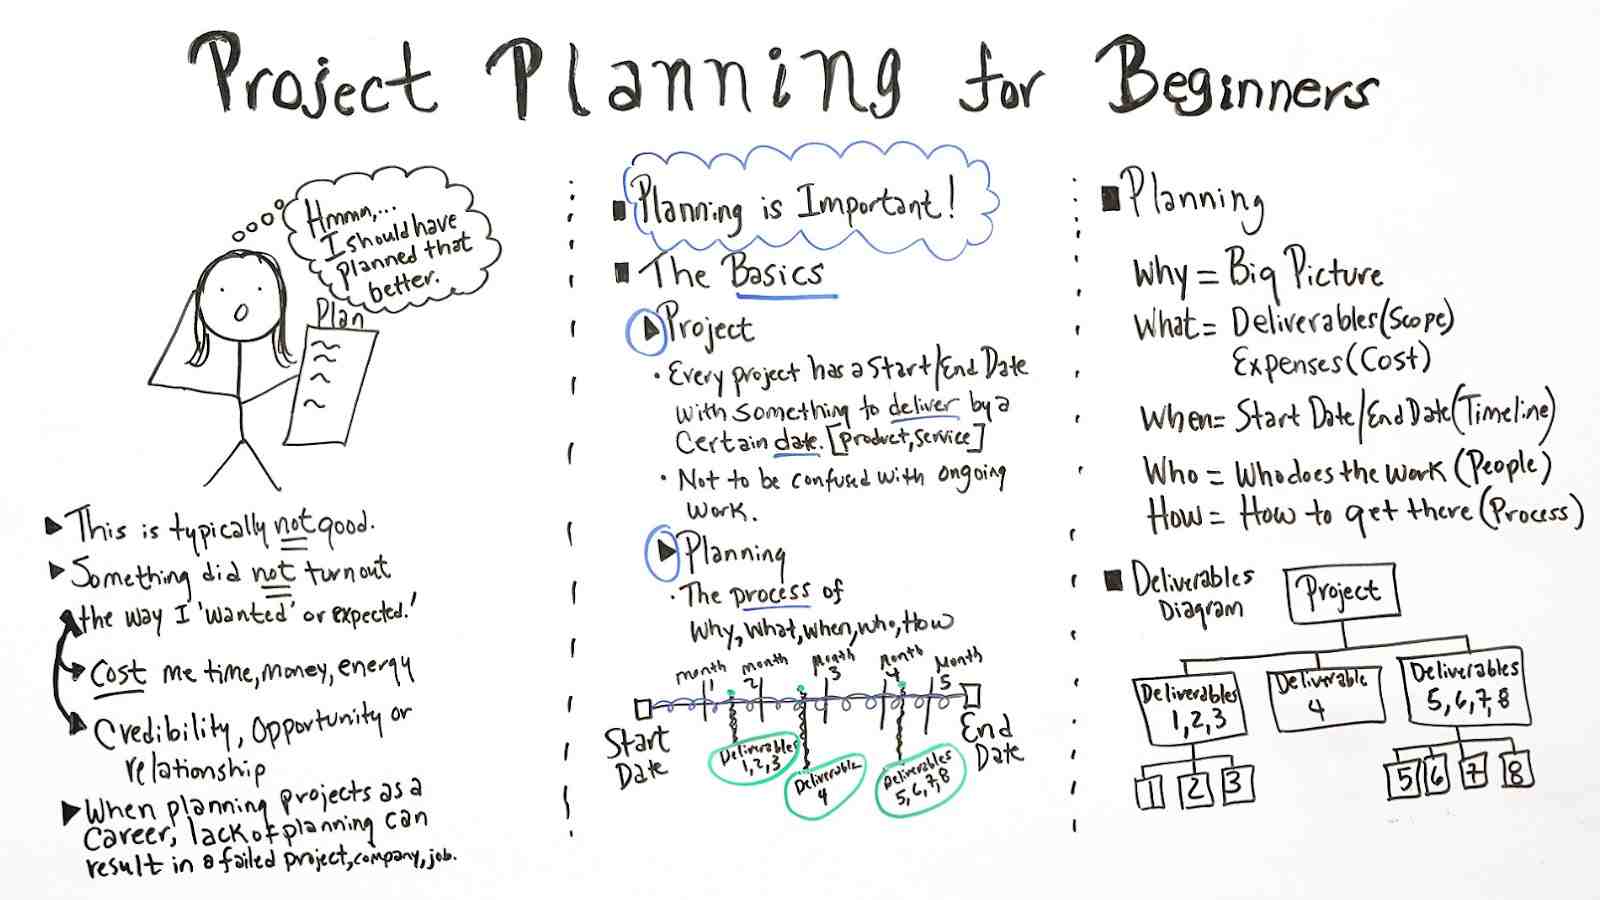 Project Planning for Beginners
Hmmm,...
I should have
planned that
better.
Plan
This is typically not good.
Something did not turn out
the way I 'wanted' or expected.'
Cost me time, money, energy
Credibility, Opportunity or
relationship
When planning projects as a
Career, lack of planning can
result in a failed project, company, job.
Planning is Important!
The Basics
Project
• Every project has a Start/End Date
with something to deliver by a
Certain date. [product, service]
• Not to be confused with ongoing
work.
Planning
• The process of
Why, What, When, Who, How
month
1
month
2
Month
3
Month
4
Month
5
Start
Date
Deliverables
1,2,3
Deliverable
4
Deliverables
5,6,7,8
End
Date
Planning
Why = Big Picture
What = Deliverables (Scope)
Expenses (Cost)
When = Start Date/End Date (Timeline)
Who = Who does the work (People)
How = How to get there (Process)
Deliverables
Diagram
Project
Deliverables
1,2,3
Deliverable
4
Deliverables
5,6,7,8
1 2 3
5 6 7 8